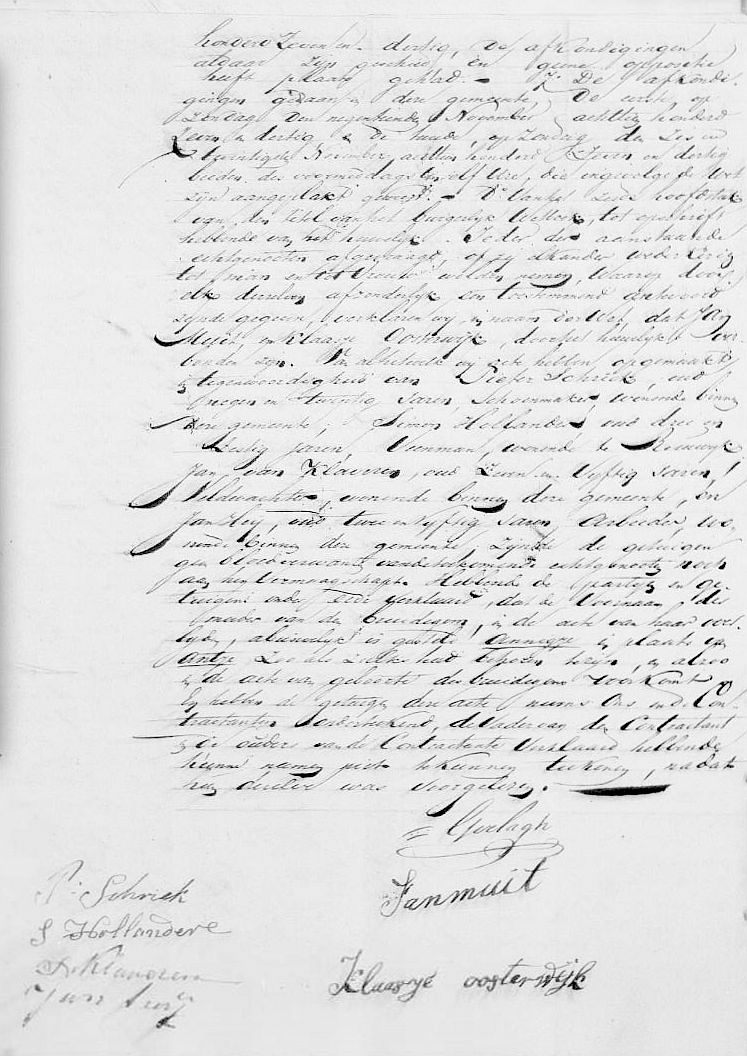 honderd Zeven en dertig, de afkondigingen
aldaar zijn geschied en geene oppositie
heeft plaats gehad. - 7e De afkondi
gingen gedaan in deze gemeente, de eerste, op
Zondag den negentienden November achttien honderd
Zeven en dertig en de tweede, op Zondag den Zes en
twintigsten November achttien honderd Zeven en dertig
beiden des voormiddags ten elf Ure, die ingevolge de Wet
zijn aangeplakt geweest. - het zesde hoofdstuk
van den titel van het burgerlijk Wetboek, tot opschrift
hebbende van het huwelijk. Ieder der aanstaande
echtgenooten afgevraagd, of zij elkander wederkeerig
tot man en tot Vrouw wilden nemen, Waarop door
elk derzelven afzonderlijk een toestemmend antwoord
zijnde gegeven, verklaren wij in naam der Wet, dat Jan
Muit en Klaasje Oosterwijk, door het huwelijk ver
bonden zijn. Van al hetwelk wij acte hebben opgemaakt
in tegenwoordigheid van Pieter Schriek, oud
negen en twintig Jaren, Schoenmaker, wonende binnen
deze gemeente, Simon Hollander, oud drie en
Zestig jaren, Veenman, wonende te Reeuwijk
Jan van Klaveren, oud Zeven en Vijftig Jaren,
Veldwachter, wonende binnen deze gemeente, en
Jan Hey, oud twee en vijftig Jaren Arbeider wo
nende binnen deze gemeente, Zijnde de getuigen
geen bloedverwant van de bekomende echtgenooten noch
aan hen Vermaagschapt. Hebbende de partijen en ge
tuigen onder Eede verklaard, dat de Voornaam der
moeder van den bruidegom, in de acte van haar over
lijden, abusivelijk is gesteld Annigje in plaats van
Antje Zoo als Zulks had behooren te zijn, en alzoo
in de acte van geboorte des bruidegoms Voorkomt
En hebben de getuigen deze acte nevens Ons en de Con
tractanten onderteekend, de Vader van den Contractant
en de ouders van de Contractante Verklaard hebbende
hunne namen niet te kunnen teekenen, nadat
hun dezelve was voorgelezen.
Goelagh
P: Schriek
Jan muit
S Hollander
J V Klaveren
Klaasje oosterwijk
Jan hey